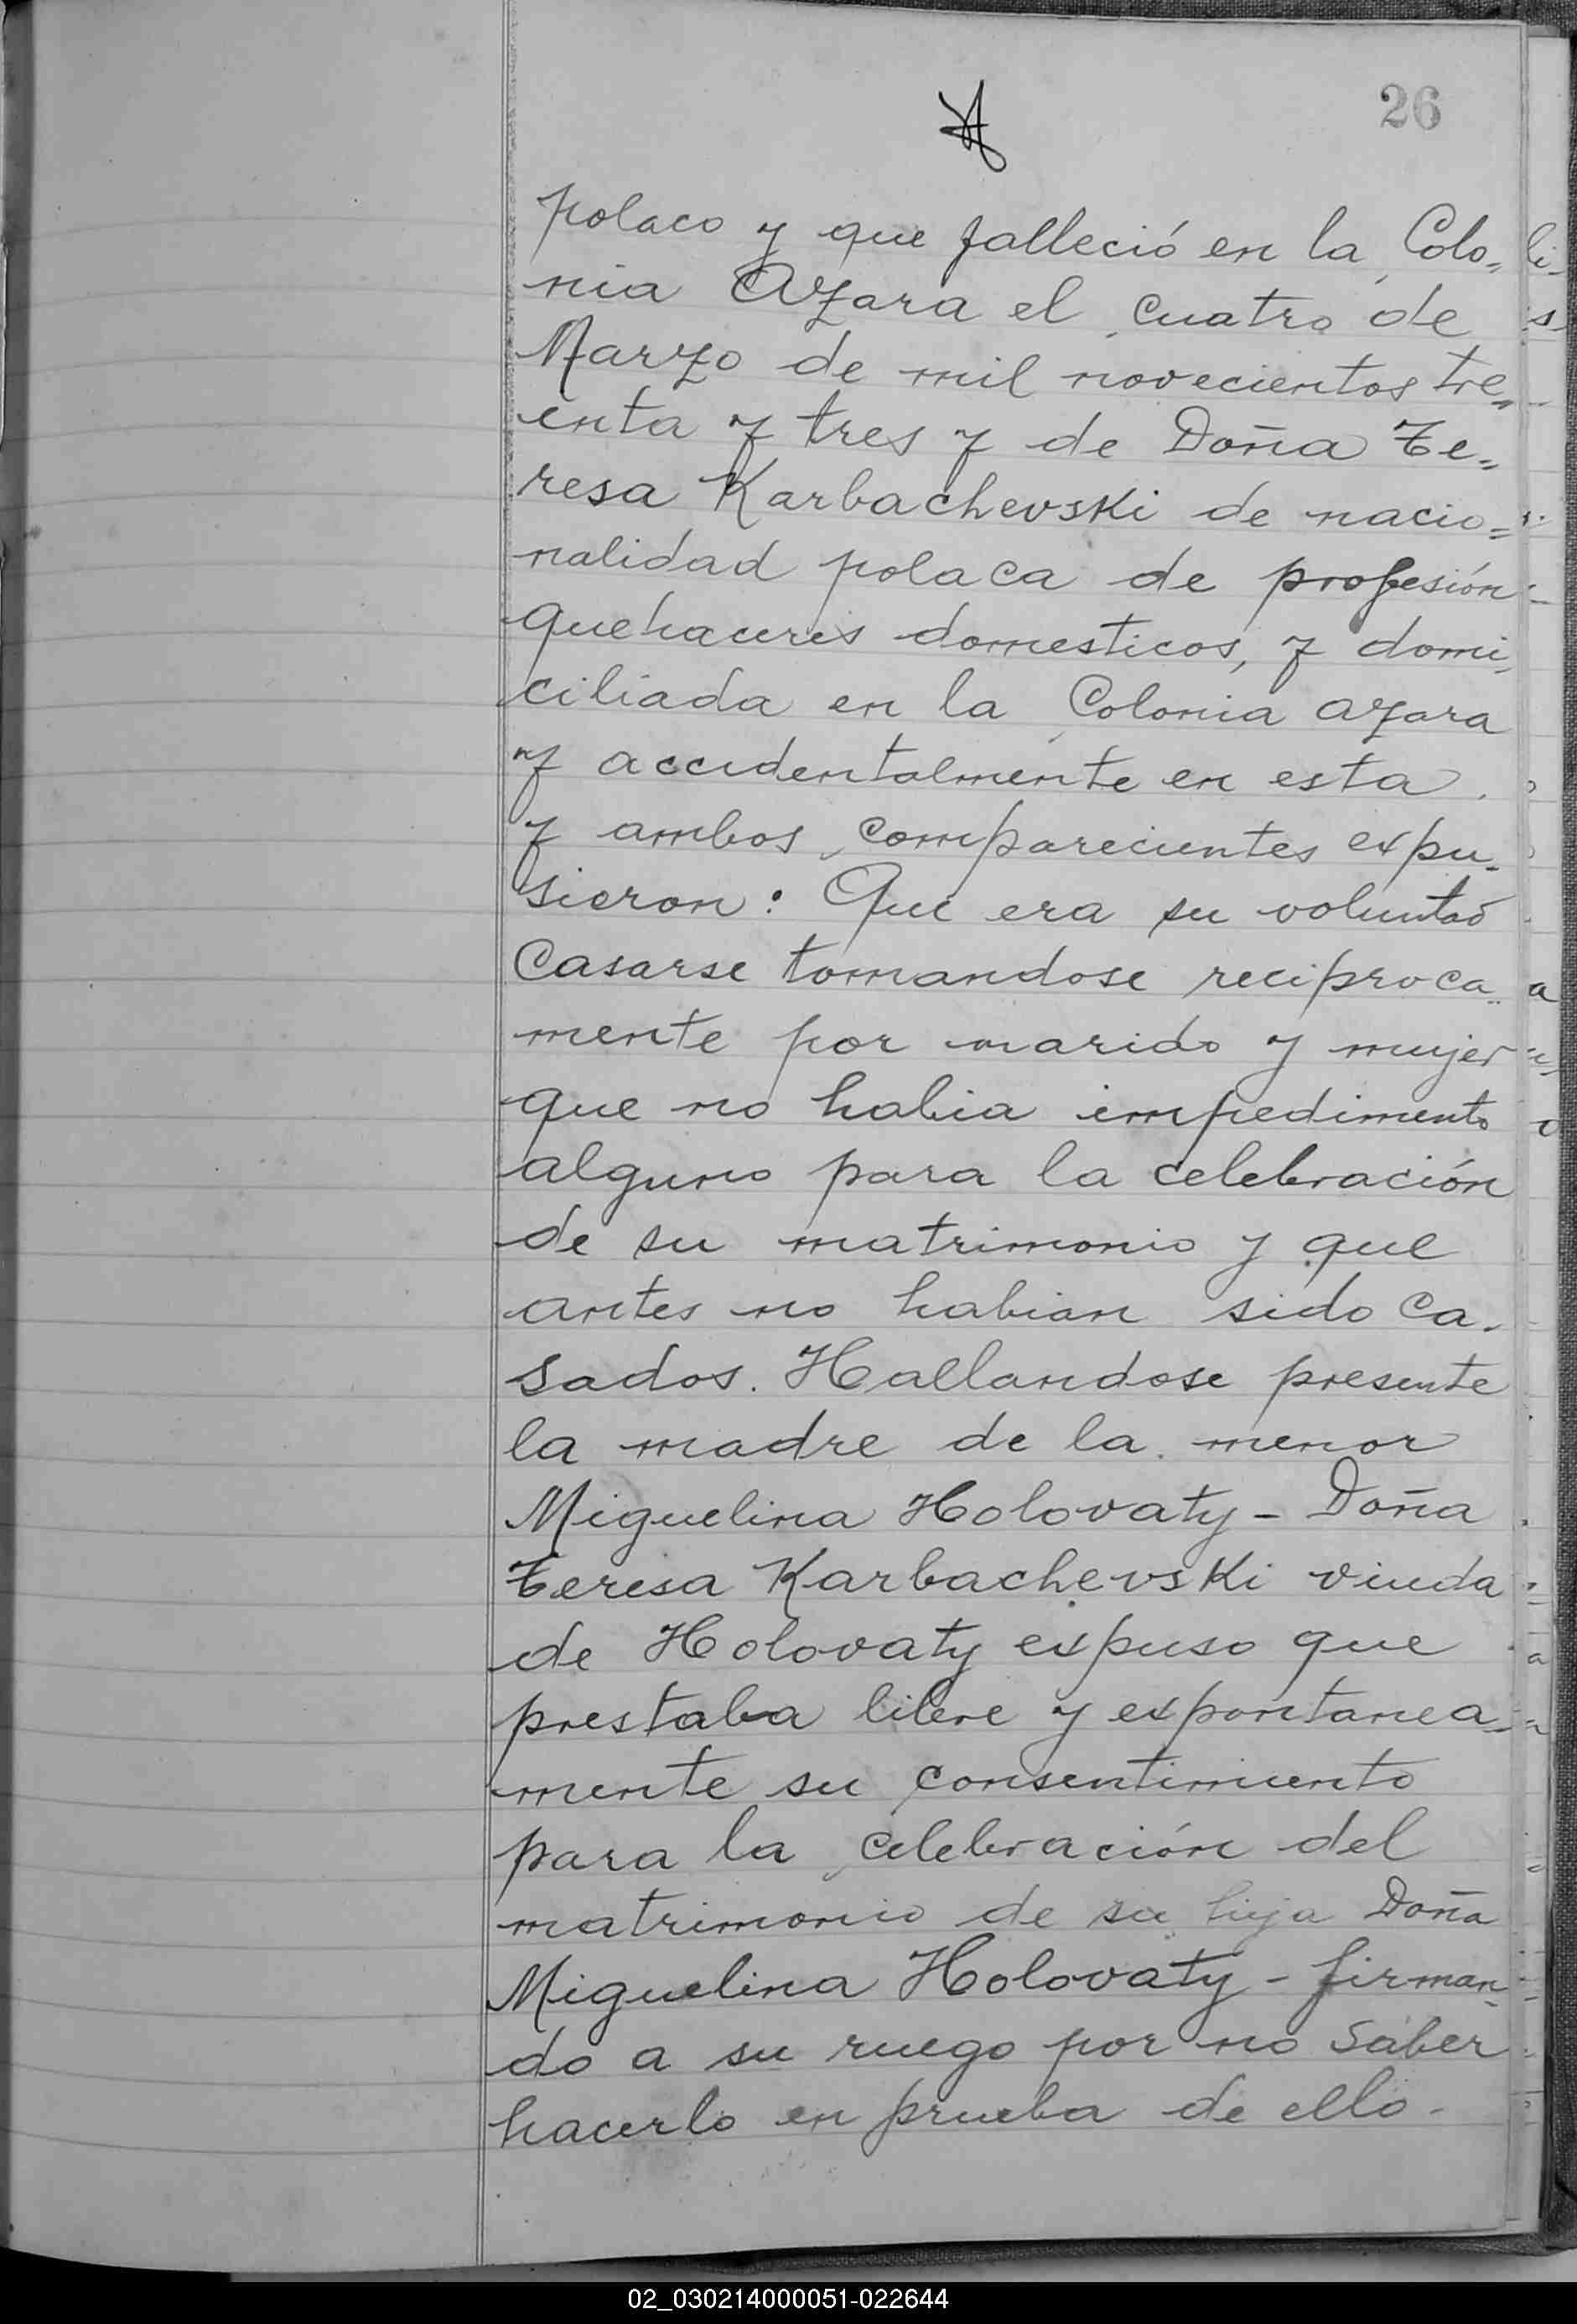 26
polaco y que falleció en la Colo=
nia Azara el cuatro de
Marzo de mil novecientos tre=
enta y tres y de Doña Te=
resa Karbachevski de nacio=
nalidad polaca de profesión
quehaceres domesticos, y domi=
ciliada en la Colonia azara
y accidentalmente en esta.
y ambos comparecientes expu=
sieron: Que era su voluntad
Casarse tomandose reciproca=
mente por marido y mujer
que no habia impedimento
alguno para la celebración
de su matrimonio y que
antes no habian sido ca-
sados. Hallandose presente
la madre de la menor
Miguelina Holovaty - Doña
Teresa Karbachevski viuda
de Holovaty expuso que
prestaba libre y expontanea=
mente su consentimiento
para la celebración del
matrimonio de su hija Doña
Miguelina Holovaty - firman=
do a su ruego por no saber
hacerlo en prueba de ello.
02_030214000051-022644